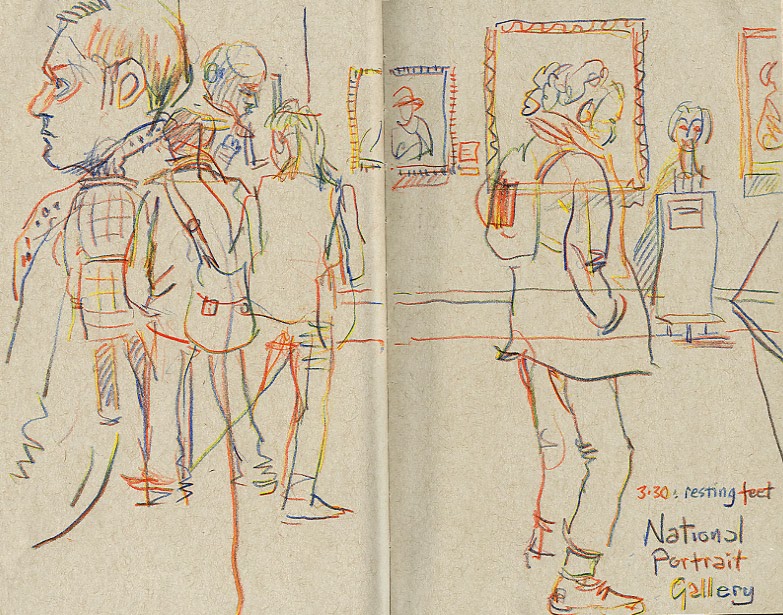 3.30: resting feet
National
Portrait
Gallery